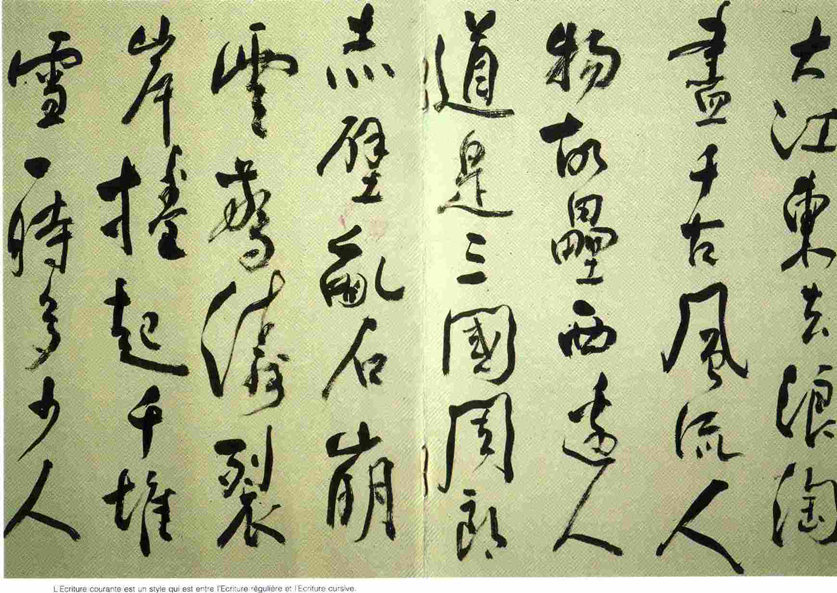 大江東去浪淘
盡千古風流人
物故壘西邊人
道是三國周郎
赤壁亂石崩
雲驚濤裂
岸捲起千堆
雪一時多少人
L'Ecriture courante est un style qui est entre l'Ecriture régulière et l'Ecriture cursive.